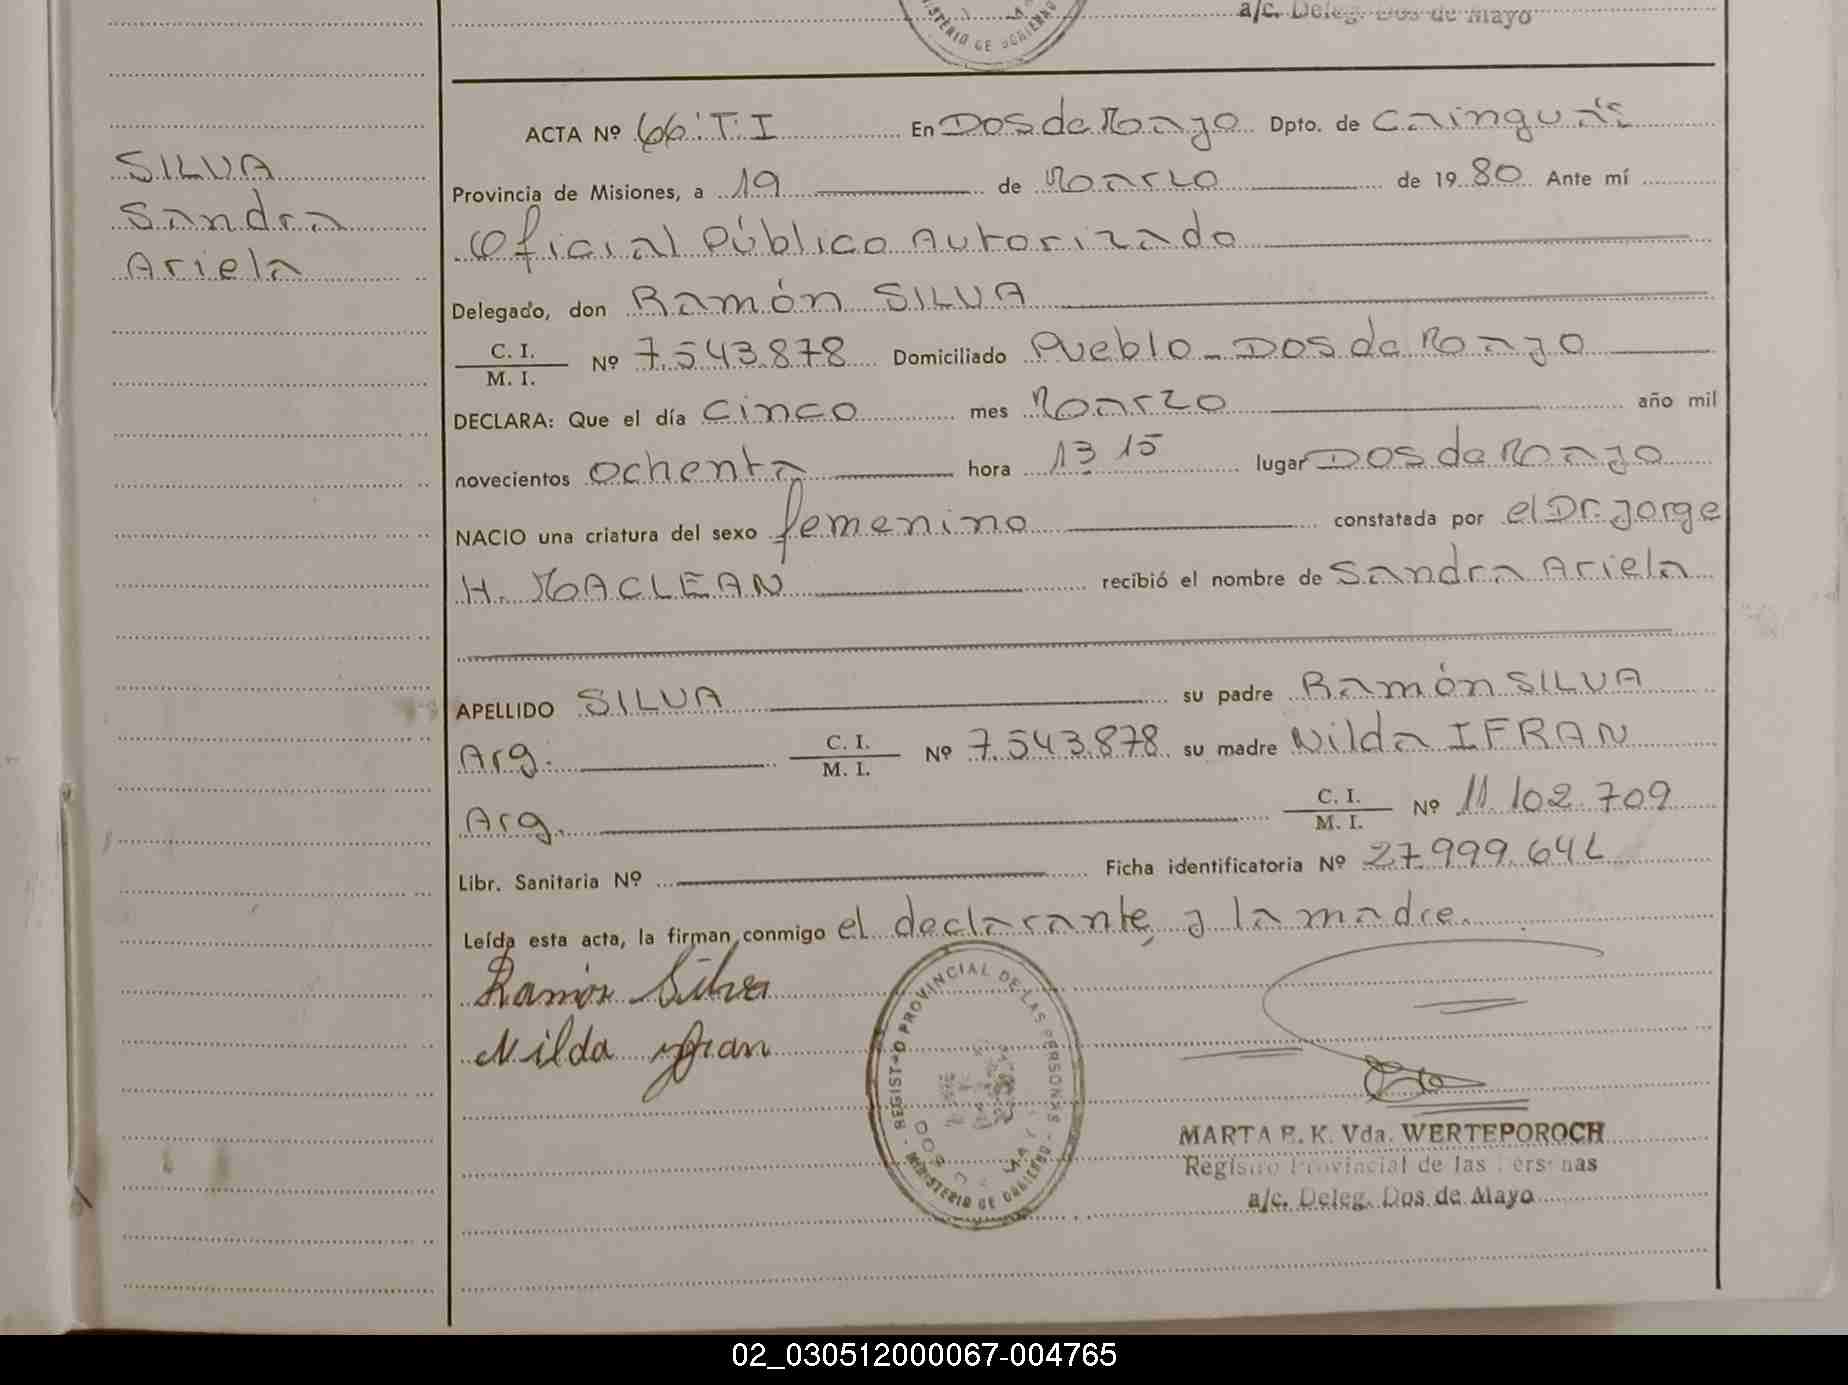 a/c. Deleg. Dos de Mayo
MINISTERIO DE GOBIERNO
SILVA
Sandra
Ariela
ACTA Nº 66 T.I En Dos de Mayo Dpto. de Cainguás
Provincia de Misiones, a 19 de Marzo de 1980 Ante mí
Oficial Público Autorizado
Delegado, don Ramón SILVA
C. I.
M. I. Nº 7.543.878 Domiciliado Pueblo - Dos de Mayo
DECLARA: Que el día cinco mes Marzo año mil
novecientos ochenta hora 13 15 lugar Dos de Mayo
NACIO una criatura del sexo femenino constatada por el Dr. Jorge
H. MACLEAN recibió el nombre de Sandra Ariela
APELLIDO SILVA su padre Ramón SILVA
Arg. C. I. M. I. Nº 7.543.878 su madre Nilda IFRAN
Arg. C. I. M. I. Nº 11.102.709
Libr. Sanitaria Nº Ficha identificatoria Nº 27.999.642
Leída esta acta, la firman conmigo el declarante, y la madre.
Ramón Silva
Nilda Ifran
REGISTRO PROVINCIAL DE LAS PERSONAS - MINISTERIO DE GOBIERNO
MARTA E. K. Vda. WERTEPOROCH
Registro Provincial de las Personas
a/c. Deleg. Dos de Mayo
02_030512000067-004765